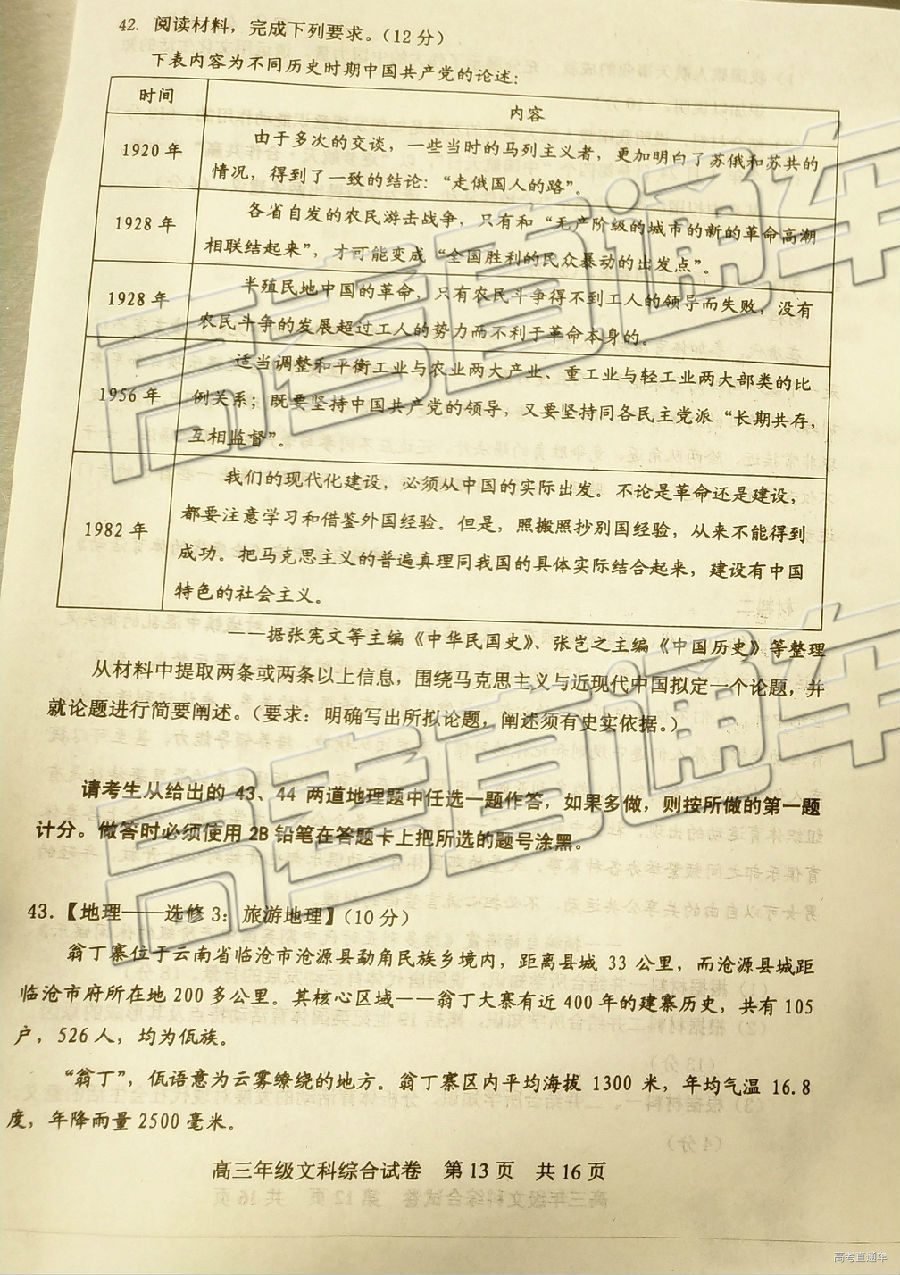 42. 阅读材料，完成下列要求。（12分）
下表内容为不同历史时期中国共产党的论述：
时间 内容
1920年 由于多次的交谈，一些当时的马列主义者，更加明白了苏俄和苏共的
情况，得到了一致的结论：“走俄国人的路”。
1928年 各省自发的农民游击战争，只有和“无产阶级的城市的新的革命高潮
相联结起来”，才可能变成“全国胜利的民众暴动的出发点”。
1928年 半殖民地中国的革命，只有农民斗争得不到工人的领导而失败，没有
农民斗争的发展超过工人的势力而不利于革命本身的。
1956年 适当调整和平衡工业与农业两大产业、重工业与轻工业两大部类的比
例关系；既要坚持中国共产党的领导，又要坚持同各民主党派“长期共存，
互相监督”。
1982年 我们的现代化建设，必须从中国的实际出发。不论是革命还是建设，
都要注意学习和借鉴外国经验。但是，照搬照抄别国经验，从来不能得到
成功。把马克思主义的普遍真理同我国的具体实际结合起来，建设有中国
特色的社会主义。
——据张宪文等主编《中华民国史》、张岂之主编《中国历史》等整理
从材料中提取两条或两条以上信息，围绕马克思主义与近现代中国拟定一个论题，并
就论题进行简要阐述。（要求：明确写出所拟论题，阐述须有史实依据。）
请考生从给出的 43、44 两道地理题中任选一题作答，如果多做，则按所做的第一题
计分。做答时必须使用 2B 铅笔在答题卡上把所选的题号涂黑。
43.【地理——选修 3：旅游地理】（10分）
翁丁寨位于云南省临沧市沧源县勐角民族乡境内，距离县城 33 公里，而沧源县城距
临沧市府所在地 200 多公里。其核心区域——翁丁大寨有近 400 年的建寨历史，共有 105
户，526 人，均为佤族。
“翁丁”，佤语意为云雾缭绕的地方。翁丁寨区内平均海拔 1300 米，年均气温 16.8
度，年降雨量 2500 毫米。
高三年级文科综合试卷 第 13 页 共 16 页
高考直通车
高考直通车
高考直通车